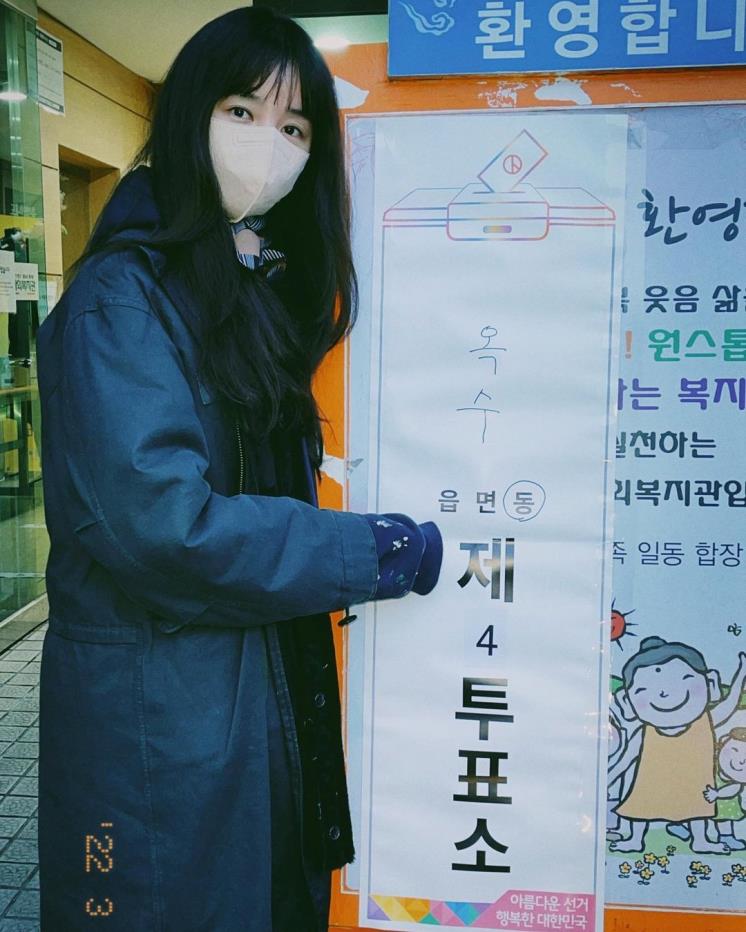 환영합니
환영
옥
수
읍 면 동
제
4
투
표
소
아름다운 선거
행복한 대한민국
웃음
! 원스톱
는 복지
실천하는
회복지관입
일동 합장
'22 3